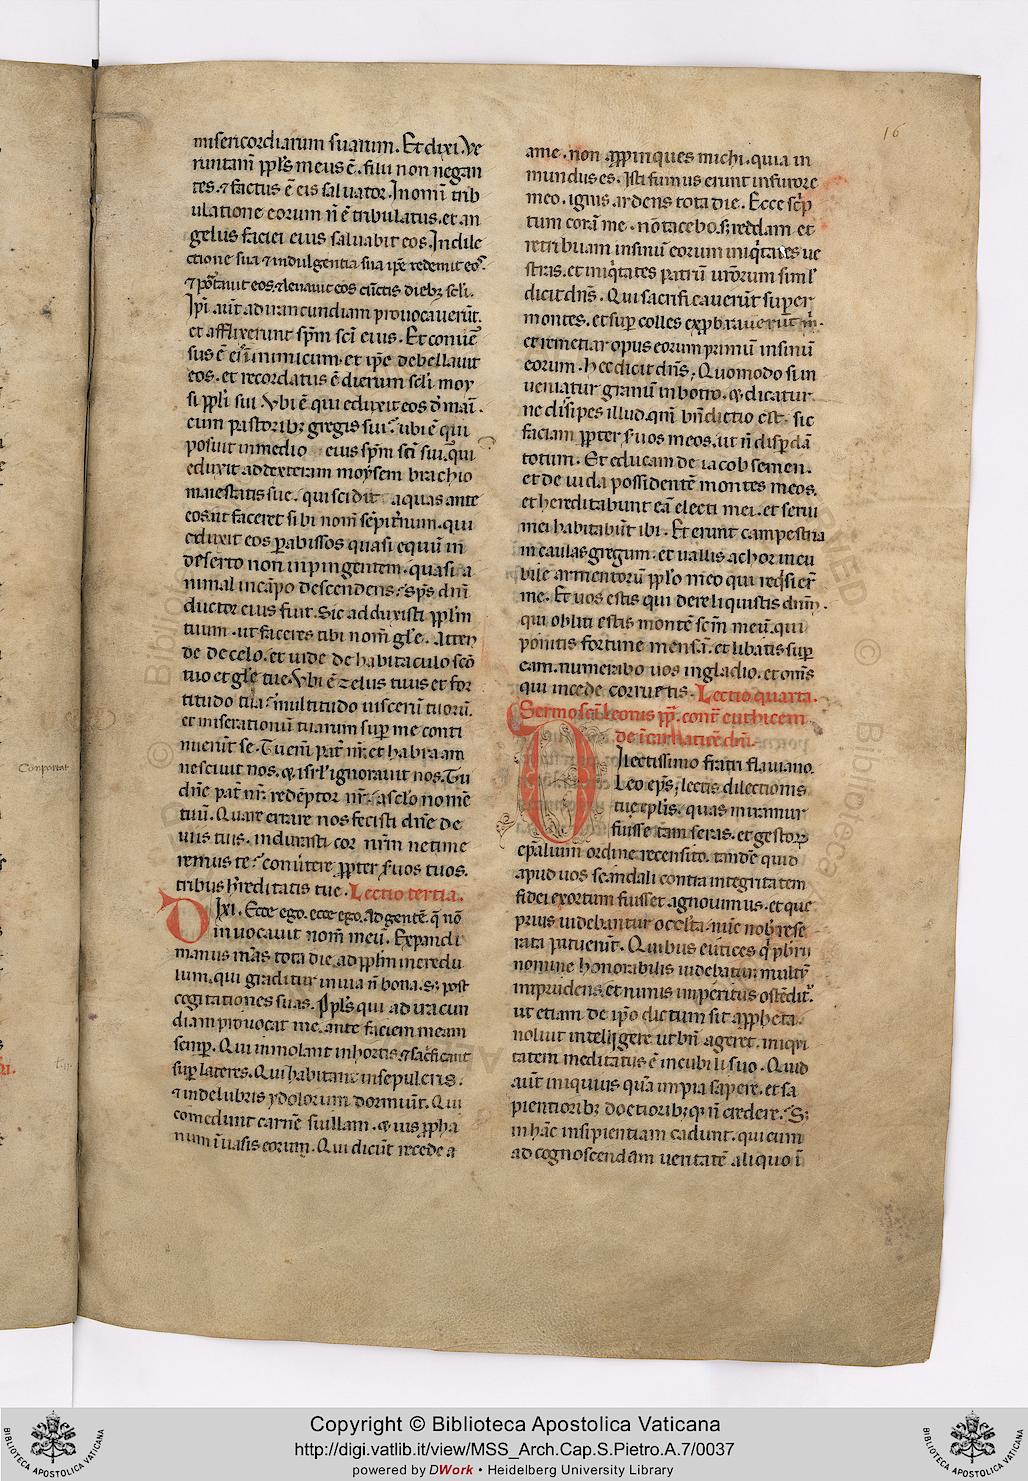 misericordiarum suarum. Et dixi. Ve
runtam̄ ppl's meus ē. filii non negan
tes. ⁊ factus ē eis saluator. In om̄i trib
ulatione eorum n̄ ē tribulatus. et an
gelus faciei eius saluabit eos. In dile
ctione sua ⁊ indulgentia sua ip̄e redemit eos.
⁊ portauit eos. ⁊ leuauit eos cūctis dieb; scl'i.
Ip̄i aūt ad iracundiam prouocauerūt.
et afflixerunt sp̄m sc̄i eius. Et conuer
sus ē eis ī inimicum. et ip̄e debellauit
eos. et recordatus ē dierum scl'i moy
si ppl'i sui. Vbi ē qui eduxit eos d' mari.
cum pastorib; gregis sui. ubi ē qui
posuit in medio eius sp̄m sc̄i sui. qui
eduxit ad dexteram moysem brachio
maiestatis sue. qui scidit aquas ante
eos. ut faceret sibi nom̄ sēpit'num. qui
eduxit eos p abissos quasi equū in
deserto non inpingentem. quasi a
nimal in cāpo descendens. sp̄s dn̄i
ductor eius fuit. Sic adduxisti ppl'm
tuum. ut faceres tibi nom̄ gl'e. Atten
de de celo. et uide de habitaculo sc̄o
tuo et gl'e tue. Vbi ē zelus tuus et for
titudo tua. multitudo uiscerū tuorū.
et miserationū tuarum sup me conti
nuerūt se. Tu eni pat' nr̄. et habraam
nesciuit nos. et isr'l ignorauit nos. Tu
dn̄e pat' nr̄. redēptor nr̄. a scl'o nomē
tuū. Quare errare nos fecisti dn̄e de
uiis tuis. indurasti cor nr̄m ne time
remus te. conu'tere ppter s'uos tuos.
tribus h'reditatis tue. Lectio tertia.
Dixi. Ecce ego. ecce ego. Ad gentē. q̄ nō
inuocauit nom̄ meū. Expandi
manus m̄as tota die. ad ppl'm incredu
lum. qui graditur in uia n̄ bona. S; post
cogitationes suas. Ppl's qui ad iracun
diam prouocat me. ante faciem meam
semp. Qui inmolant in hortis. ⁊ sac'ficant
sup lateres. Qui habitant in sepulcris.
⁊ in delubris ydolorum dormiūt. Qui
comedunt carnē suillam. et ius ppha
num ī uasis eorum. Qui dicūt recede a
16
a me. non appinques michi. quia in
mundus es. Isti fumus erunt in furore
meo. ignis ardens tota die. Ecce sc̄p
tum corā me. nō tacebo. s; reddam et
retribuam in sinū eorum iniq'tates ue
stras. et iniq'tates patrū ur̄orum simul
dicit dn̄s. Qui sacrificauerūt super
montes. et sup colles exprobrauerūt m'.
et remetiar opus eorum primū in sinū
eorum. hec dicit dn̄s; Quomodo si in
ueniatur granū in botro. et dicatur.
ne dissipes illud. qm̄ bn̄dictio ē st. sic
faciam ppter s'uos meos. ut n̄ dispdā
totum. Et educam de iacob semen.
et de iuda possidentē montes meos.
et hereditabunt eā electi mei. et serui
mei habitabūt ibi. Et erunt campestria
in caulas gregum. et uallis achor in cu
bile armentorū pplo meo qui req'sier̄
me. Et uos estis qui dereliquistis dn̄m.
qui obliti estis montē sc̄m meū. qui
ponitis fortune mensā. et libatis sup
eam. numerabo uos in gladio. et om̄s
qui in cede corruetis. Lectio quarta.
Sermo sc̄i leonis pp̄. cont' euthicem
de īcarnatiōe dn̄i.
Dilectissimo fratri flauiano.
Leo ep̄s; lectis dilectionis
tue eplis. quas miramur
fuisse tam seras. et gestorꝝ
epālium ordine recensito. tandē quid
apud uos scandali contra integritatem
fidei exortum fuisset agnouimus. et que
prius uidebantur occulta. nūc nob' rese
rata patuerūt. Quibus eutices q' pb'rii
nomine honorabilis uidebatur. multū
imprudens. et nimis imperitus ostēdit'.
ut etiam de ip̄o dictum sit a ppheta.
noluit intelligere ut bn̄ ageret. iniqui
tatem meditatus ē in cubili suo. Quid
aūt iniquius quā impia sapere. et sa
pientiorib; doctiorib;q; n̄ credere. S;
in hāc insipientiam cadunt. qui cum
ad cognoscendam ueritatē aliquo ī
Conportat
Copyright © Biblioteca Apostolica Vaticana
http://digi.vatlib.it/view/MSS_Arch.Cap.S.Pietro.A.7/0037
powered by DWork • Heidelberg University Library
BIBLIOTECA APOSTOLICA VATICANA
BIBLIOTECA APOSTOLICA VATICANA